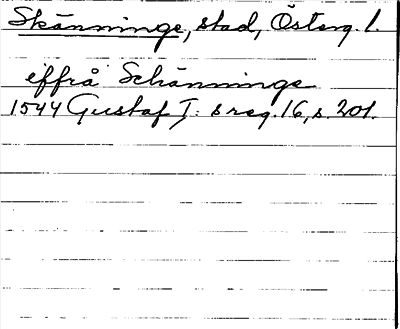 Skänninge, stad, Österg. l.
effrå Schänninge
1544 Gustaf I: s reg. 16, s. 201.